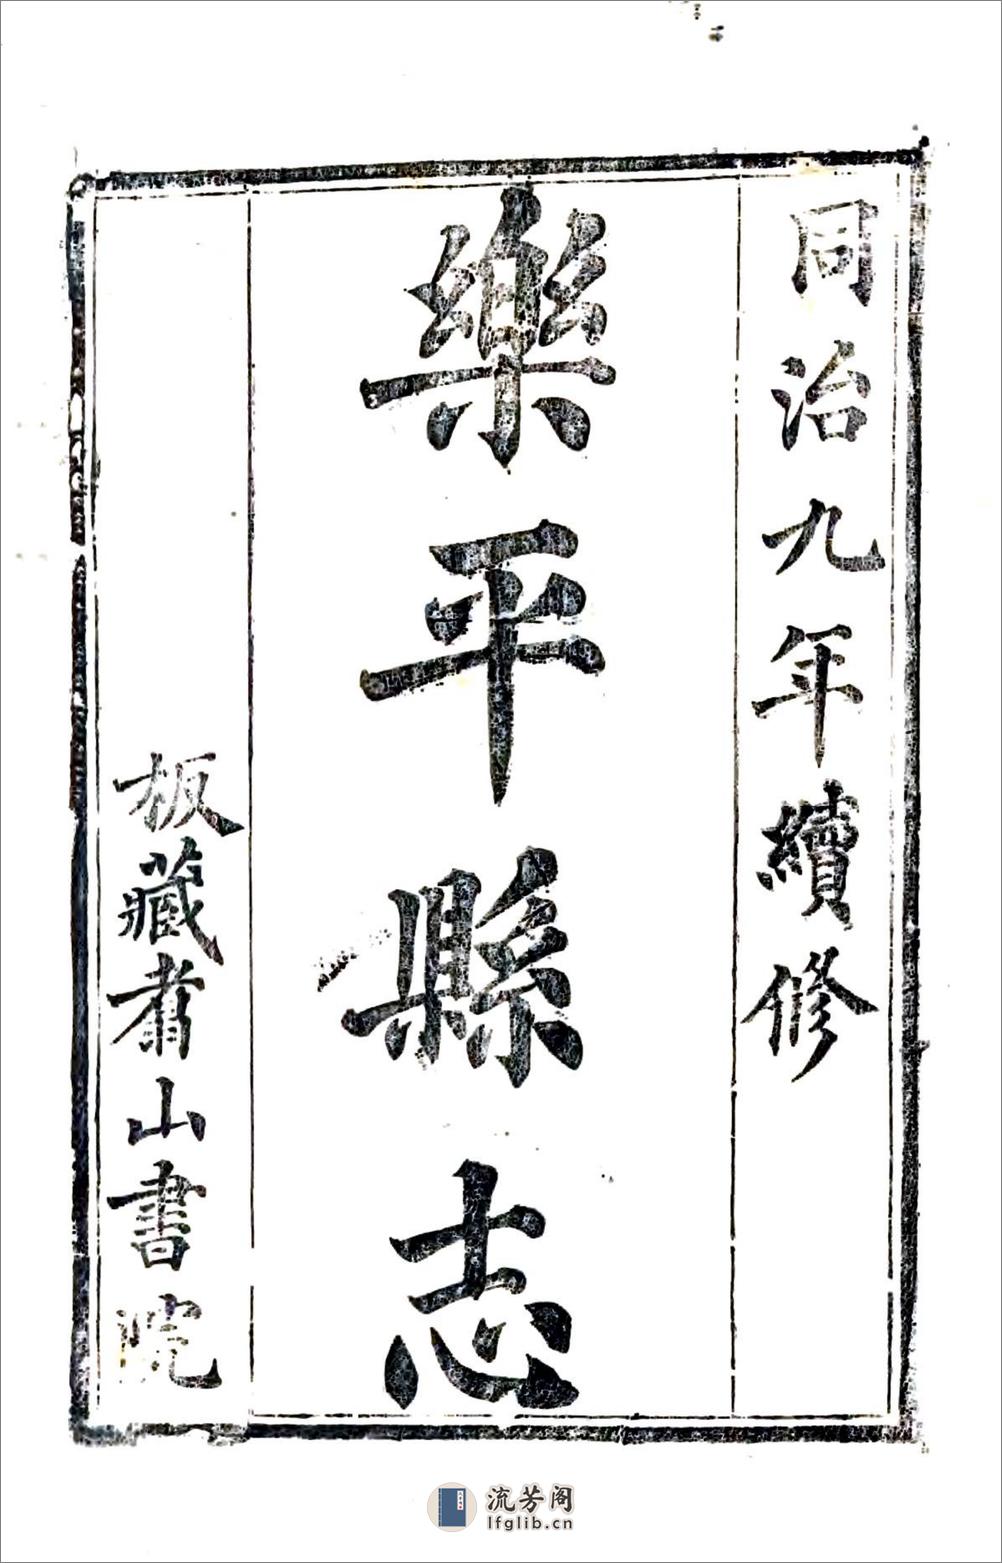 同治九年續修
樂平縣志
板藏翥山書院
流芳阁
lfglib.cn